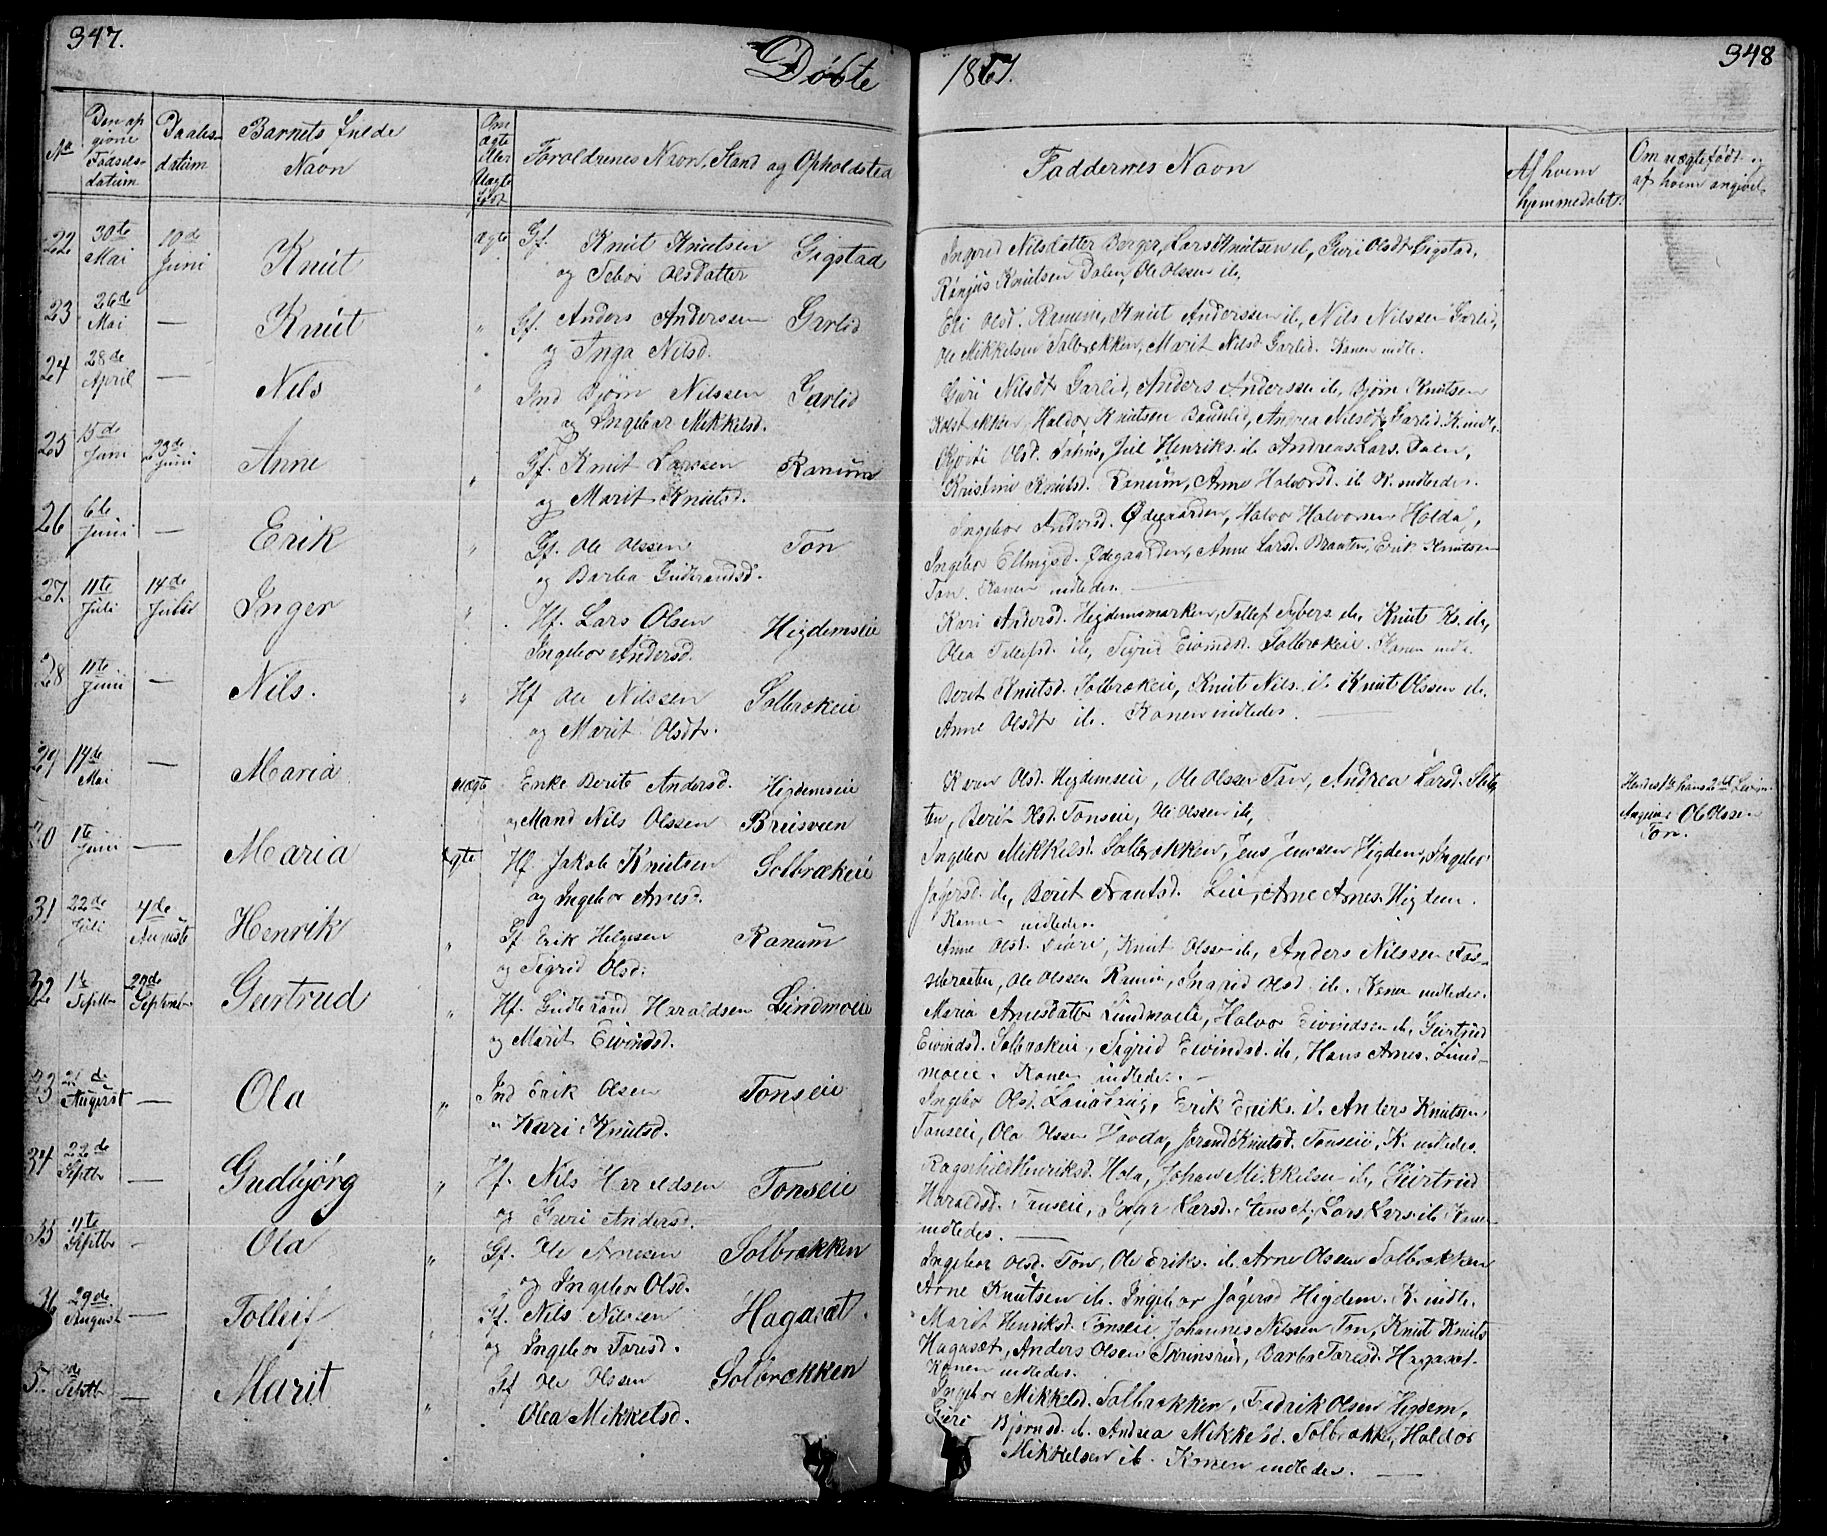 347.
Döbte
1867.
348
No
Den op
givne
Fødsels-
datum
Daabs-
datum
Barnets fulde
Navn
Om
ægte
eller
Uægte
født
Foroldrenes Navn, Stand og Opholdsted
Faddernes Navn
Af hvem
hjemmedøbt.
Om uægtefødt og
af hvem angivet
22 30te Mai 10de Juni Knut ægte Gf. Knut Knutsen Gigstad
og Olsdatter
Ingerid Nilsdatter Berger, Lars Knutsen ib, Guri Olsdtr Gigstad,
Knutsen Dalen, Ole Olssen ib,
23 26de Mai — Knut " Gf. Anders Anderssen Garlid
og Inga Nilsd.
Eli Olsd. Ranum, Knut Anderssen ib, Nils Nilssen Garlid,
Ole Mikkelsen Solbrækken, Marit Nilsd Garlid. Konen indle.
24 28de April — Nils " Ind Bjørn Nilssen Garlid
og Ingebor Mikkelsd.
Guri Nilsdt Garlid, Anders Anderssen ib, Bjørn Knutsen
Halvor Knutsen Andrea Nilsdt Garlid. K. indl.
25 15de Juni 23de Juni Anne " Gf. Knut Larssen Ranum
og Marit Knutsd.
Olsd. Henriks. ib Andreas Lars. Dalen,
Kristine Knutsd. Ranum, Anne Halvorsd. ib K. indleder.
26 6te Juni — Erik " Gf. Ole Olssen Ton
og Barba Gudbrandsd.
Ingebor Andersd. Ødegaarden, Halvor Halvorsen Holda,
Ingebor Ellingsd. Ødegaarden, Anne Larsd. Braaten, Erik Knutsen
Ton. Konen indleder. —
27. 11te Juli 14de Julii Inger " Hf. Lars Olsen Higdemseie
Ingebor Andersd.
Kari Andersd. Higdemsmarken, Tollef ib, Knut ib,
Olea Tollefsd. ib, Sigrid Eivindsd. Solbrækeie. Konen indle.
28 11te Juni — Nils. " Hf Ole Nilssen Solbrækeie
og Marit Olsdtr.
Berit Knutsd. Solbrækeie, Knut Nils. ib Knut Olssen ib.
Anne Olsdtr ib. Konen indleder. —
29 14de Mai — Maria uægte Enke Berite Andersd. Higdemseie
og Mand Nils Olssen Bruisveen
Karen Olsd. Higdemseie, Ole Olssen Ton, Andrea Larsd.
ten, Berit Olsd. Tonseie, Ole Olssen ib,
Hendes 1te hans 2det
Angiver Ole Olssen
Ton.
30 1te Juni — Maria ægte Hf Jakob Knutsen Solbrækeie
og Ingebor Arnesd.
Ingebor Mikkelsd. Solbrækken, Jens Jenssen Higdem, Ingebor
Jøgersd. ib, Berit Lie, Arne Arnes. Higdem.
Konen indleder.
31 22de Juli 4de Auguste Henrik " Gf Erik Helgesen Ranum
og Sigrid Olsd.
Anne Olsd. Knut Olssen ib, Anders Nilssen Fos-
sebraaten, Ole Olssen Ranum, Ingrid Olsd. ib. Konen indleder.
32 1te Septbr 22de Septembr Gertrud " Hf. Gudbrand Haraldsen Lindmoeie
og Marit Eivindsd.
Maria Arnesdatter Lindmoeie, Halvor Eivindsen ib, Gertrud
Eivindsd. Solbrækeie, Sigrid Eivindsd. ib, Hans Arnes. Lind-
moeie. Konen indleder. —
33 21de August — Ola " Ind Erik Olsen Tonseie
" Kari Knutsd.
Ingebor Olsd. Erik Eriks. ib. Anders Knutsen
Tonseie, Ola Olssen Hovda, Jorand Knutsd. Tonseie, K. indleder.
34 22de Septbr — Gudbjørg " Hf. Nils Haraldsen Tonseie
og Guri Andersd.
Ragnhild Henriksd. Hola, Johan Mikkelsen ib, Giertrud
Haraldsd. Tonseie, Larsd. Lars Lars. ib Konen
indleder. —
35 4te Septbr — Ola " Gf. Ole Arnesen Solbrækken
og Ingebor Olsd.
Ingebor Olsd. Ton, Ole Eriks. ib. Arne Olssen Solbrækken
Arne Knutsen ib. Ingebor Jøgersd Higdem. K. indle.
36 29de August — Tolleif " Gf. Nils Nilssen Hagaset.
og Ingebor Toresd.
Marit Henriksd. Tonseie, Johannes Nilssen Ton, Knut Knuts
Hagaset, Anders Olsen Skrinsrud, Barba Toresd. Hagaset.
Konen indleder.
Septbr — Marit " Gf Ole Olssen Solbrækken
Olea Mikkelsd.
Ingebor Mikkelsd. Solbrækken, Fredrik Olsen Higdem,
Guri Bjørnsd. ib. Andrea Mikkelsd. Solbrækken, Haldor
Mikkelsen ib. Konen indleder. —